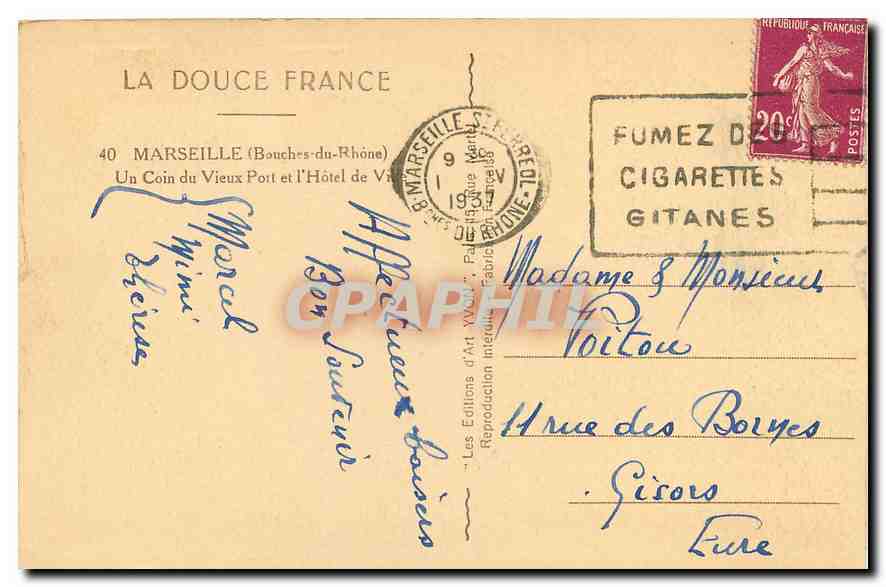 LA DOUCE FRANCE
40 MARSEILLE (Bouches-du-Rhône)
Un Coin du Vieux Port et l'Hôtel de Vi
Affectueux baisers
Bon Souvenir
Marcel
Mimi
Thérèse
"Les Editions d'Art YVON", Pa 15 Rue Martel
Reproduction Interdite Fabrication Française
MARSEILLE ST FERREOL
9 30
1 V
1937
BCHES DU RHÔNE
FUMEZ DES
CIGARETTES
GITANES
REPUBLIQUE FRANÇAISE
20c
POSTES
Madame & Monsieur
Poitou
11 rue des Bornes
Gisors
Eure
CPAPHIL